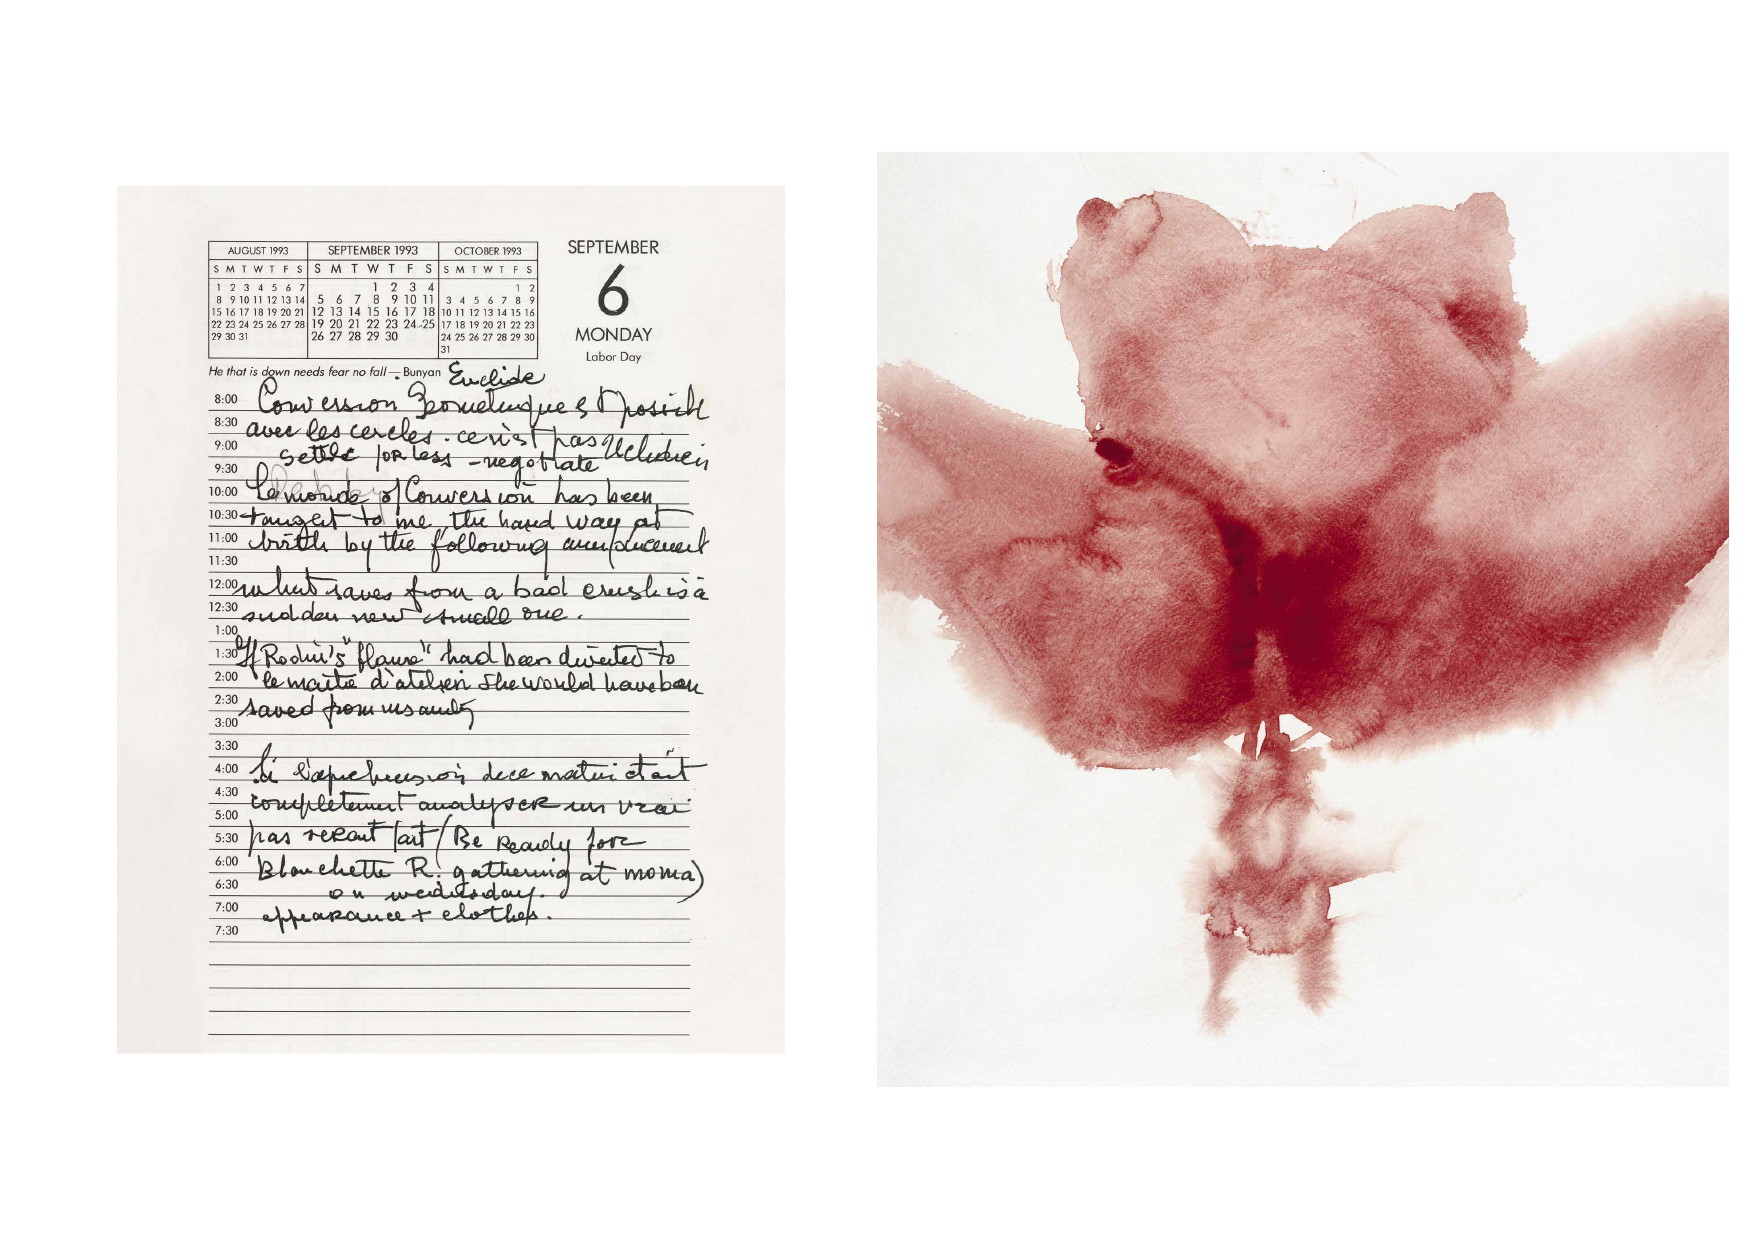 AUGUST 1993 SEPTEMBER 1993 OCTOBER 1993
S M T W T F S S M T W T F S S M T W T F S
1 2 3 4 5 6 7 1 2 3 4 1 2
8 9 10 11 12 13 14 5 6 7 8 9 10 11 3 4 5 6 7 8 9
15 16 17 18 19 20 21 12 13 14 15 16 17 18 10 11 12 13 14 15 16
22 23 24 25 26 27 28 19 20 21 22 23 24 25 17 18 19 20 21 22 23
29 30 31 26 27 28 29 30 24 25 26 27 28 29 30
31
SEPTEMBER
6
MONDAY
Labor Day
He that is down needs fear no fall — Bunyan Euclide
8:00 Conversion Geometrique est
8:30 avec les cercles. ce n'est pas
9:00 settle for less - negotiate
9:30
10:00 Le monde of Conversion has been
10:30 taught to me, the hard way at
11:00 birth by the following
11:30
12:00 what saves from a bad crush is a
12:30 sudden new small one.
1:00
1:30 If Rodin's "flame" had been diverted to
2:00 le d'atelier she would have been
2:30 saved from insanity
3:00
3:30
4:00 Si de ce matin était
4:30 completement analyser un vrai
5:00
5:30 pas serait fait (Be Ready for
6:00 Blanchette R. gathering at moma)
6:30 on wednesday.
7:00 appearance + clothes.
7:30